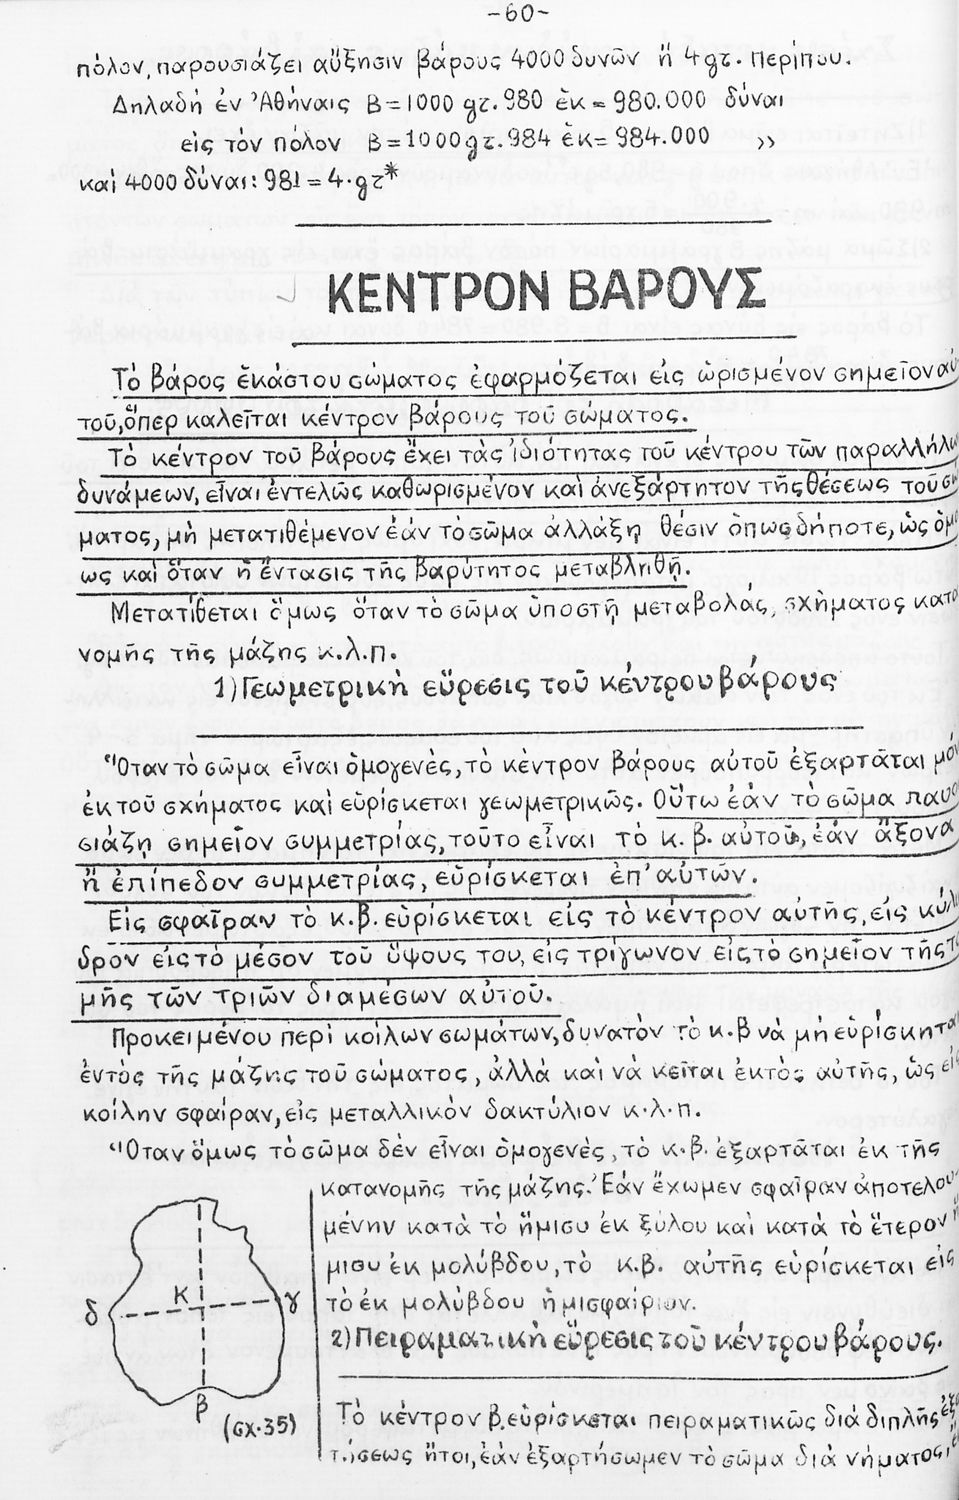 -60-
πόλον, παρουσιάζει αὔξησιν βάρους 4000 δυνῶν ἤ 4 gr. περίπου.
Δηλαδή ἐν Ἀθήναις Β = 1000 gr. 980 ἐκ = 980.000 δύναι
εἰς τόν πόλον Β = 1000 gr. 984 ἐκ = 984.000 »
καί 4000 δύναι : 981 = 4 · gr*
ΚΕΝΤΡΟΝ ΒΑΡΟΥΣ
Τὸ βάρος ἑκάστου σώματος ἐφαρμόζεται εἰς ὡρισμένον σημεῖον αὐ
τοῦ, ὅπερ καλεῖται κέντρον βάρους τοῦ σώματος.
Τὸ κέντρον τοῦ βάρους ἔχει τὰς ἰδιότητας τοῦ κέντρου τῶν παραλλήλω
δυνάμεων, εἶναι ἐντελῶς καθωρισμένον καὶ ἀνεξάρτητον τῆς θέσεως τοῦ σώ
ματος, μὴ μετατιθέμενον ἐάν τὸ σῶμα ἀλλάξῃ θέσιν ὁπωςδήποτε, ὡς ὁμ
ως καὶ ὅταν ἡ ἔντασις τῆς βαρύτητος μεταβληθῇ.
Μετατίθεται ὅμως ὅταν τὸ σῶμα ὑποστῇ μεταβολάς, σχήματος κατα
νομῆς τῆς μάζης κ.λ.π.
1) Γεωμετρικὴ εὕρεσις τοῦ κέντρου βάρους
Ὅταν τὸ σῶμα εἶναι ὁμογενές, τὸ κέντρον βάρους αὐτοῦ ἐξαρτᾶται μον
ἐκ τοῦ σχήματος καὶ εὑρίσκεται γεωμετρικῶς. Οὕτω ἐάν τὸ σῶμα παρου
σιάζῃ σημεῖον συμμετρίας, τοῦτο εἶναι τὸ κ. β. αὐτοῦ, ἐάν ἄξονα
ἤ ἐπίπεδον συμμετρίας, εὑρίσκεται ἐπ' αὐτῶν.
Εἰς σφαῖραν τὸ κ.β. εὑρίσκεται εἰς τὸ κέντρον αὐτῆς, εἰς κύλιν
δρον εἰς τὸ μέσον τοῦ ὕψους του, εἰς τρίγωνον εἰς τὸ σημεῖον τῆς το
μῆς τῶν τριῶν διαμέσων αὐτοῦ.
Προκειμένου περὶ κοίλων σωμάτων, δυνατὸν τὸ κ.β νὰ μὴ εὑρίσκηται
ἐντὸς τῆς μάζης τοῦ σώματος, ἀλλὰ καὶ νὰ κεῖται ἐκτὸς αὐτῆς, ὡς εἰς
κοίλην σφαῖραν, εἰς μεταλλικὸν δακτύλιον κ.λ.π.
Ὅταν ὅμως τὸ σῶμα δὲν εἶναι ὁμογενές, τὸ κ.β. ἐξαρτᾶται ἐκ τῆς
κατανομῆς τῆς μάζης. Ἐάν ἔχωμεν σφαῖραν ἀποτελου
μένην κατὰ τὸ ἥμισυ ἐκ ξύλου καὶ κατὰ τὸ ἕτερον ἥ
μισυ ἐκ μολύβδου, τὸ κ.β. αὐτῆς εὑρίσκεται εἰς
τὸ ἐκ μολύβδου ἡμισφαίριον.
2) Πειραματικὴ εὕρεσις τοῦ κέντρου βάρους.
Τὸ κέντρον β. εὑρίσκεται πειραματικῶς διὰ διπλῆς ἐξαρ
τήσεως ἤτοι, ἐάν ἐξαρτήσωμεν τὸ σῶμα διὰ νήματος,
δ
Κ
γ
β
(σχ.35)